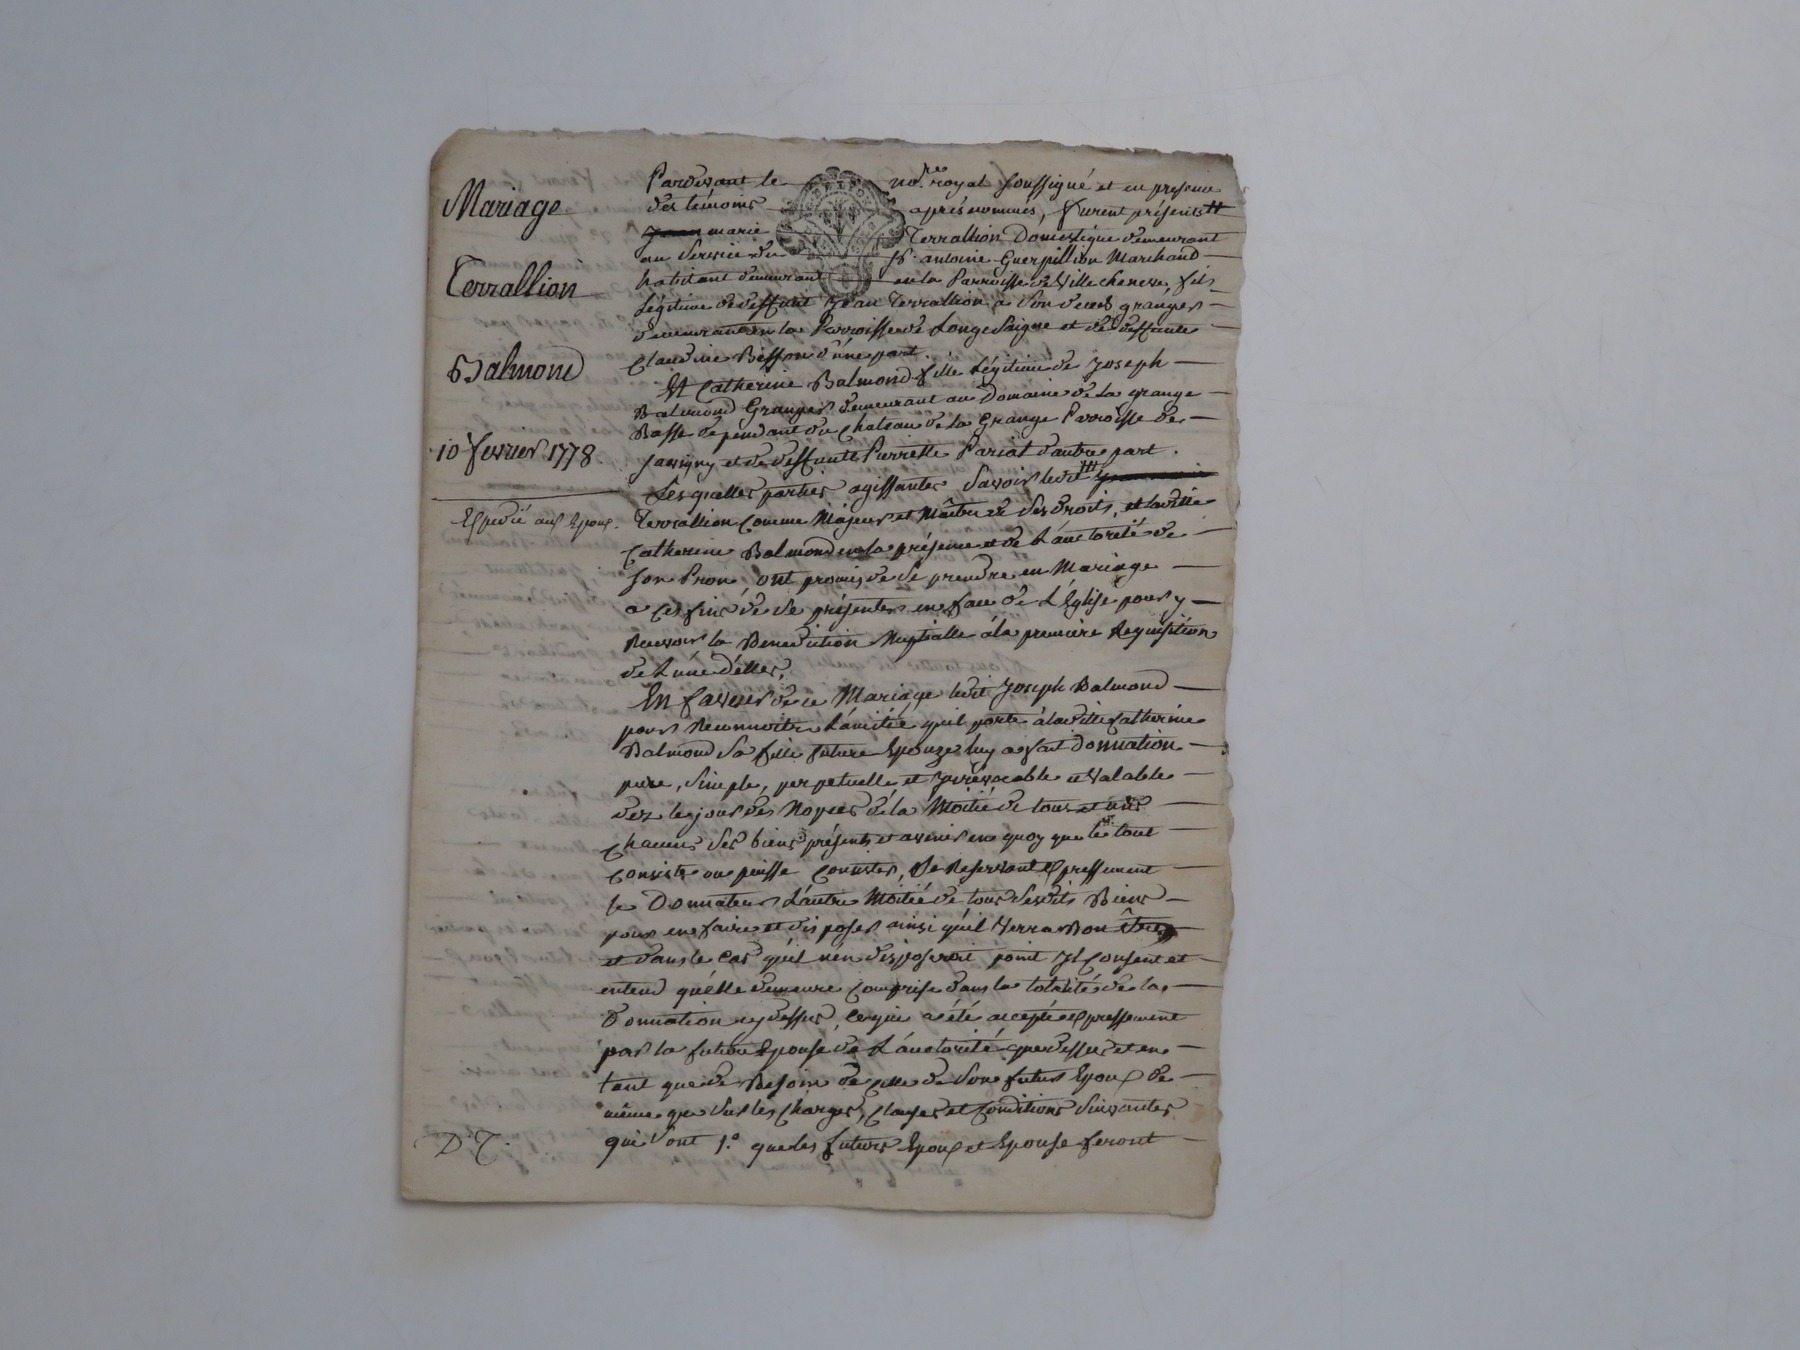 Mariage
Terrallion
Balmond
10 fevrier 1778.
Expedié aux Epoux.
Pardevant le no.re royal soussigné et en presence
des témoins après nommés, furent présents
marie Terrallion Domestique demeurant
au service du Sr. antoine Guerpillion Marchand
habitant demeurant en la Parroisse de Ville cheneve, fils
Légitime de deffunt Jean Terrallion a son deces granger
demeurant en la Parroisse de Longe Saigne et de deffunte
Claudine Bisson d'une part.
Et Catherine Balmond fille Légitime de Joseph
Balmond Granger demeurant au Domaine de La grange
Basse dependant du Chateau de La Grange Parroisse de
Savigny et de deffunte Pierrette Pariat d'autre part.
Lesquelles parties agissantes savoir ledit
Terrallion comme Majeur et Maître de ses droits, et ladite
Catherine Balmond en la présence et de L'auctorité de
son Pere, ont promis de se prendre en Mariage
a ces fins de se présenter en face de L'Eglise pour y
Recevoir la Benediction Nuptialle à la premiere Requisition
de L'une d'elles,
En faveur de ce Mariage ledit Joseph Balmond
pour Reconnoitre L'amitié qu'il porte à ladite Catherine
Balmond sa fille future Epouze luy a fait donnation
pure, simple, perpetuelle, et Jrrévocable et valable
dez le jour des Nopces de la Moitié de tous et uns
chacuns ses biens présents et avenir en quoy que le tout
consiste ou puisse consister, se Reservant expressement
le Donnateur L'autre Moitié de tous sesdits Biens
pour en faire et disposer ainsi qu'il verra Bon être
et dans le cas qu'il n'en disposeroit point Jl consent et
entend qu'elle demeure comprise dans la totalité de la
Donnation cy dessus, ce qui a été accepté expressement
par la future Epouse de L'auctorité que dessus et en
tant que de Besoin de celle de son futur Epoux de
même que sur les charges, clauses et conditions suivantes
qui sont 1.o que les futurs Epoux et Epouse feront
D. T.